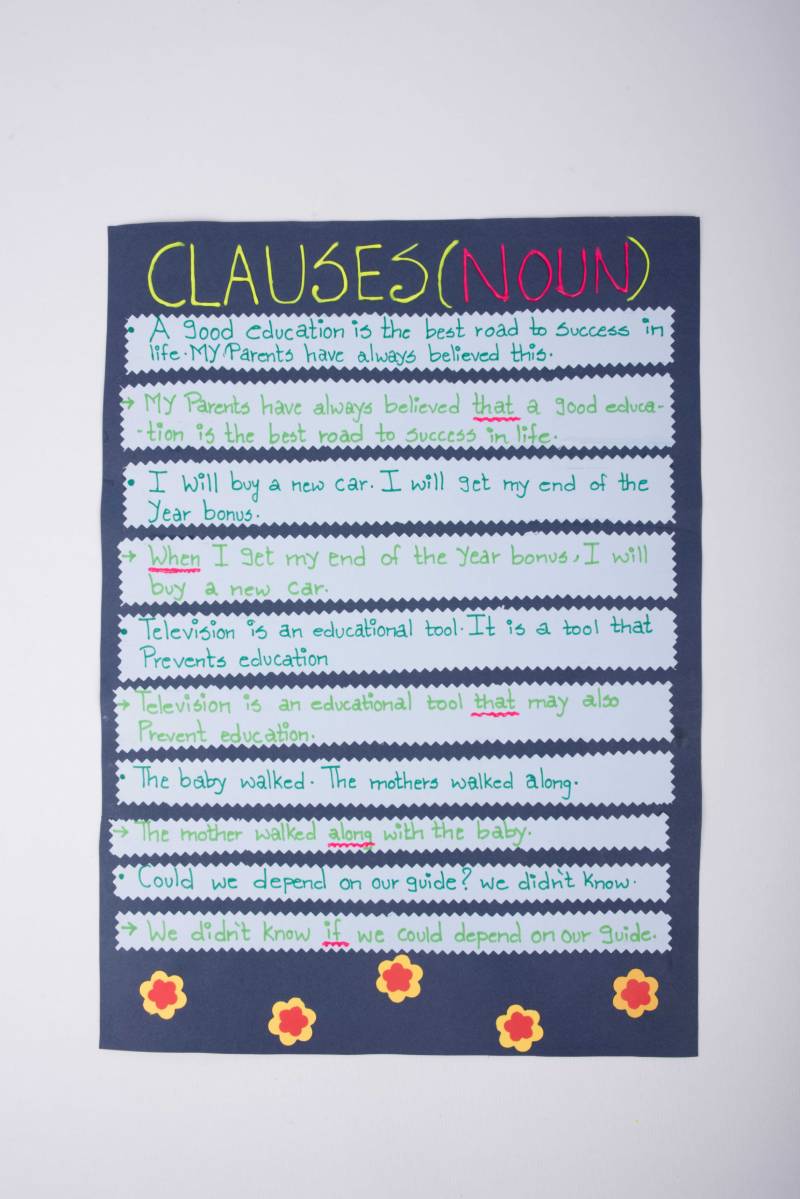 CLAUSES (NOUN)
• A good education is the best road to success in
life. My Parents have always believed this.
→ My Parents have always believed that a good educa-
-tion is the best road to success in life.
• I will buy a new car. I will get my end of the
year bonus.
→ When I get my end of the year bonus, I will
buy a new car.
• Television is an educational tool. It is a tool that
Prevents education
→ Television is an educational tool that may also
Prevent education.
• The baby walked. The mothers walked along.
→ The mother walked along with the baby.
• Could we depend on our guide? we didn't know.
→ We didn't know if we could depend on our guide.